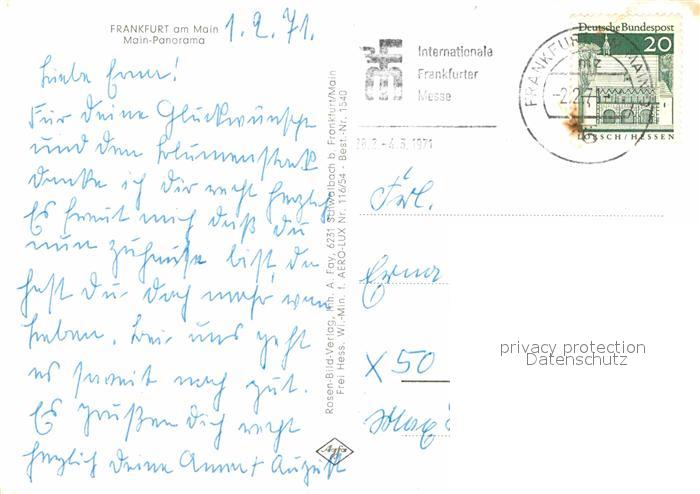 FRANKFURT am Main
Main-Panorama
1.2.71.
Liebe Erna!
Für deine Glückwünsche
und den Blumenstrauß
danke ich dir recht herzlich
Es freut mich daß du
nun zuhause bist, da
hast du doch mehr vom
Leben. Bei uns geht
es soweit noch gut.
Es grüßen dich recht
herzlich deine Anna + August
Rosen-Bild-Verlag, Inh. A. Fay, 6231 Sulwalbach b. Frankfurt/Main
Frei Hess. Wi.-Min. f. AERO-LUX Nr. 116/54 - Best-Nr. 1540
Internationale
Frankfurter
Messe
28.2.-4.3.1971
FRANKFURT MAIN
mz
-2.2.71-
Deutsche Bundespost
20
LORSCH/HESSEN
Frl.
Erna
X 50
privacy protection
Datenschutz